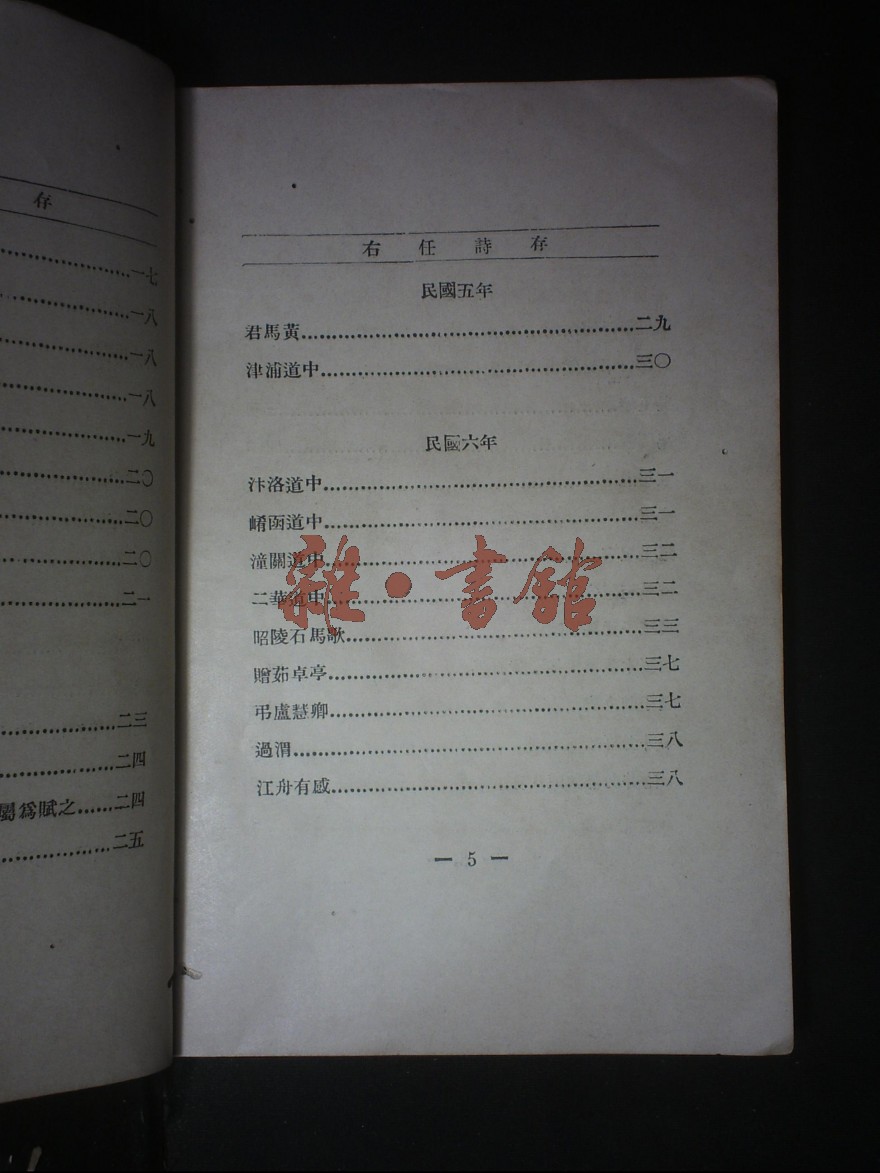 存
一七
一八
一八
一八
一九
二〇
二〇
二〇
二一
二三
二四
屬爲賦之……二四
二五
右任詩存
民國五年
君馬黃……二九
津浦道中……三〇
民國六年
汴洛道中……三一
崤函道中……三一
潼關道中……三二
二華道中……三二
昭陵石馬歌……三三
贈茹卓亭……三七
弔盧慧卿……三七
過渭……三八
江舟有感……三八
— 5 —
雜·書館